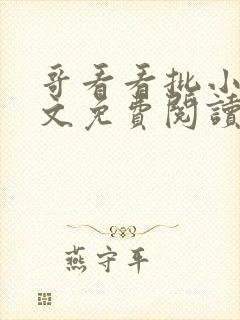 哥看看批小
文免費閱讀
燕守平